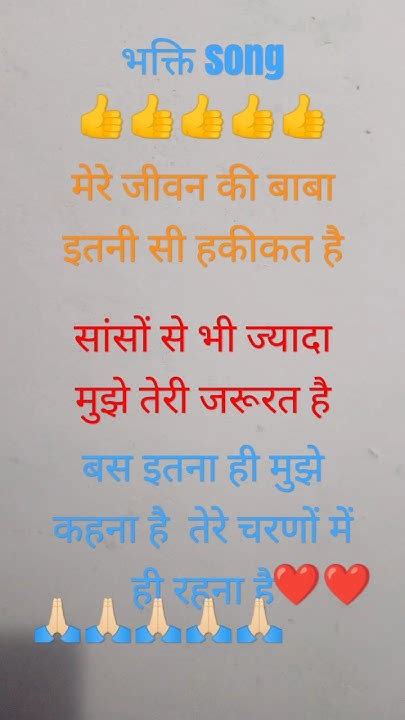 भक्ति song
👍👍👍👍👍
मेरे जीवन की बाबा
इतनी सी हकीकत है
सांसों से भी ज्यादा
मुझे तेरी जरूरत है
बस इतना ही मुझे
कहना है तेरे चरणों में
ही रहना है❤️❤️
🙏🏻🙏🏻🙏🏻🙏🏻🙏🏻